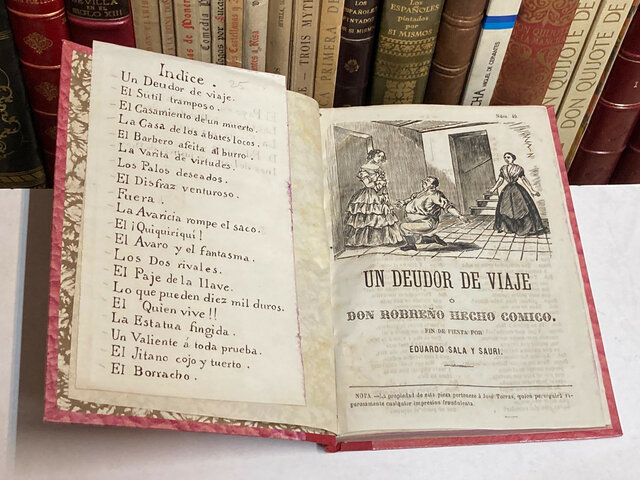 SEVILLA EN EL SIGLO XIII
LOS ESPAÑOLES
pintados
por
SI MISMOS
DON QUIJOTE DE
DON QUIJOTE DE
TRES MYTE
LA PRIMERA
Indice.
25
- Un Deudor de viaje.
- El Sutil tramposo.
- El Casamiento de un muerto.
- La Casa de los abates locos.
- El Barbero afeita al burro.
- La Varita de virtudes.
- Los Palos deseados.
- El Disfraz venturoso.
- Fuera.
- La Avaricia rompe el saco.
- El ¡Quiquiriquí!
- El Avaro y el fantasma.
- Los Dos rivales.
- El Paje de la llave.
- Lo que pueden diez mil duros.
- El Quien vive!!
- La Estatua fingida.
- Un Valiente á toda prueba.
- El Jitano cojo y tuerto.
- El Borracho.
UN DEUDOR DE VIAJE
Ó
DON ROBREÑO HECHO COMICO.
FIN DE FIESTA POR
EDUARDO SALA Y SAURI.
NOTA.—La propiedad de esta pieza pertenece á José Torras, quien perseguirá ri-
gurosamente cualquier impresion fraudulenta.